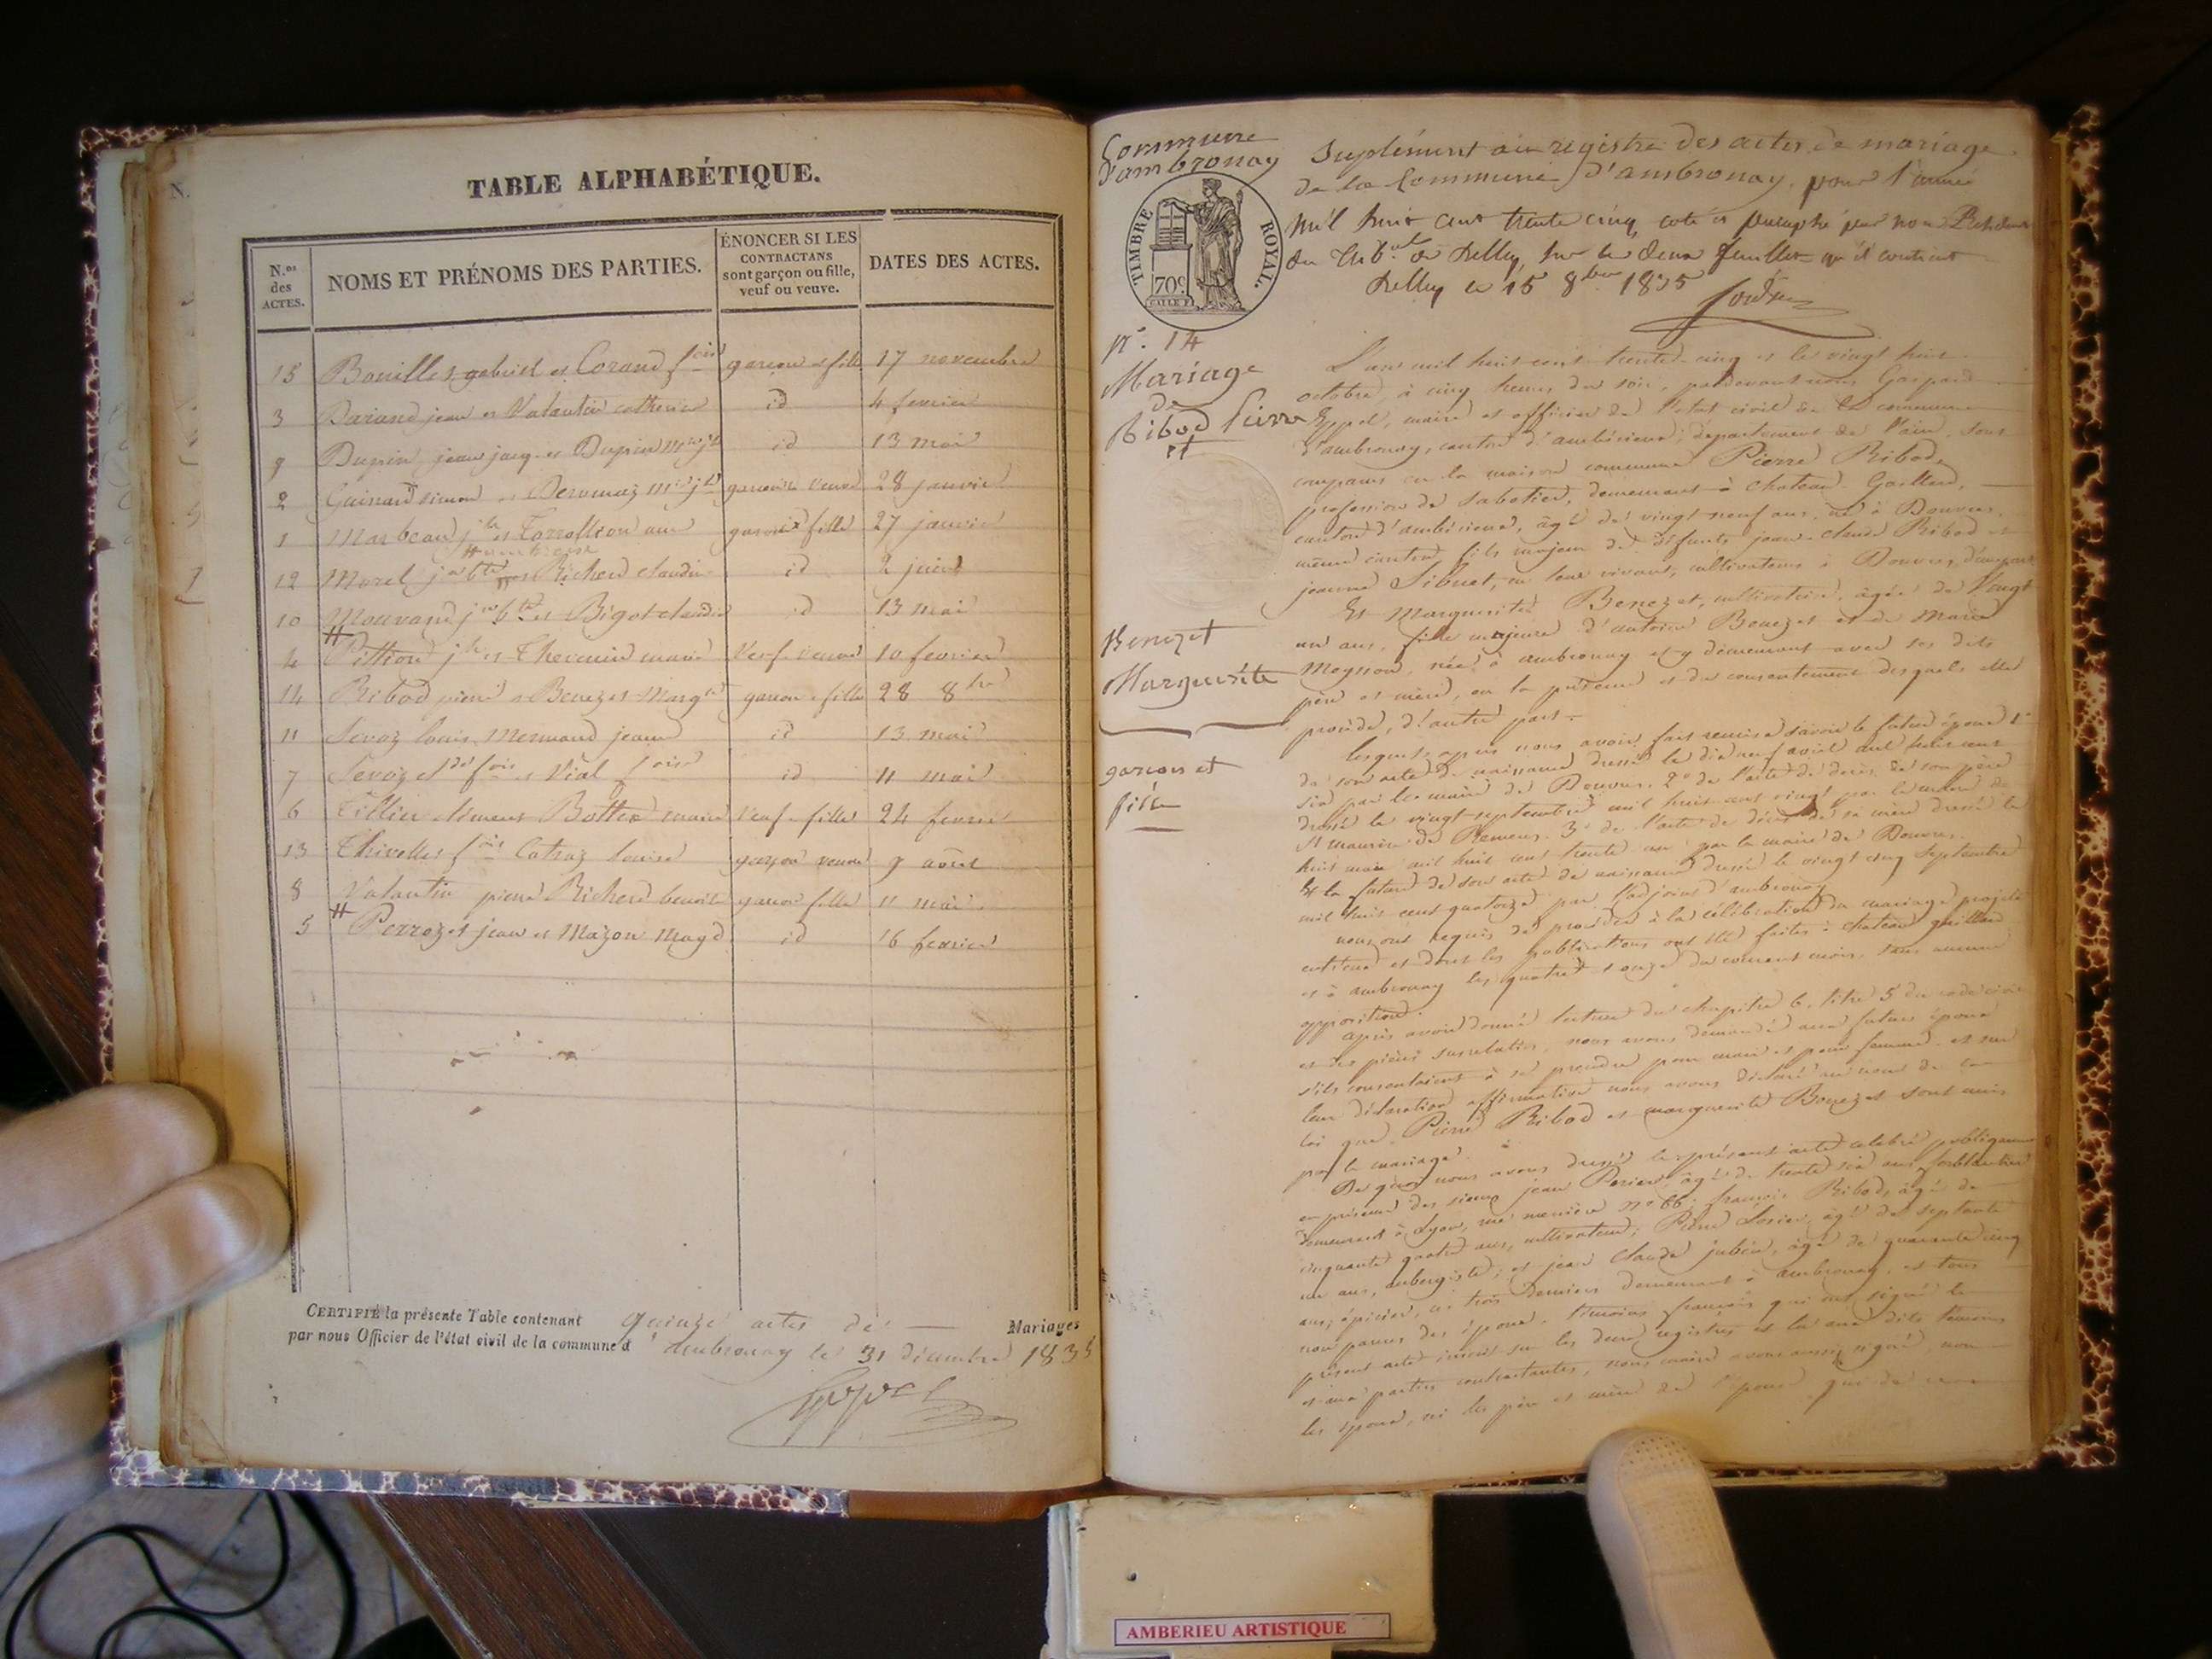 TABLE ALPHABÉTIQUE.
N.os des ACTES.
NOMS ET PRÉNOMS DES PARTIES.
ÉNONCER SI LES CONTRACTANS sont garçon ou fille, veuf ou veuve.
DATES DES ACTES.
15 gabriel et garçon et fille 17 novembre
3 jean et Valantin catherine id 4 fevrier
9 Dupin jean jacq. et Dupin id 13 mai
2 simond et 28 janvier
1 Marbeau et garçon et fille 27 janvier
12 Morel et Richerd claudine id 2 juin
10 et Bigot claudine id 13 mai
4 et Thevenin marie Veuf veuve 10 fevrier
14 Ribod pierre et Benezet Margte garçon et fille 28 8bre
11 Sevoz louis Mermand jeanne id 13 mai
7 Sevoz et Vial id 11 mai
6 Tillier climent marie Veuf fille 24 fevrier
13 Thivollet louise garçon veuve 9 août
8 Valantin pierre Richerd benoite garçon fille 11 mai
5 Perrozet jean et Mazon Magd. id 16 fevrier
CERTIFIÉ la présente Table contenant quinze actes de Mariages
par nous Officier de l'état civil de la commune d'Ambronay le 31 décembre 1835
Commune
d'ambronay
TIMBRE ROYAL.
70c
Suplément au registre des actes de mariage
de la Commune d'ambronay, pour l'année
mil huit cent trente cinq, coté et paraphé par nous
du Trib.al de Belley, sur les deux feuillets qu'il contient
Belley le 15 8bre 1835
n.o 14
Mariage
de
Ribod Pierre
et
Benezet
Marguérite
garçon et
fille
L'an mil huit cent trente-cinq et le vingt huit
octobre, à cinq heures du soir, pardevant nous Gaspard
maire et officier de l'état civil de la commune
d'ambronay, canton d'ambérieux, département de l'ain, sont
comparus en la maison commune Pierre Ribod,
profession de sabotier, demeurant à Chateau Gaillard,
canton d'ambérieux, âgé de vingt neuf ans, né à Douvres,
même canton, fils majeur de défunts jean-claude Ribod et
jeanne Sibuet, en leur vivant, cultivateurs à Douvres, d'une part
Et Marguerite Benezet, cultivatrice, âgée de Vingt
un ans, fille majeure d'antoine Benezet et de Marie
née à ambronay et y demeurant avec ses dits
père et mère, en la présence et du consentement desquels elle
procède, d'autre part.
Lesquels après nous avoir fait remise savoir le futur époux 1°
de son acte de naissance dressé le dix neuf avril mil huit cent
six par le maire de Douvres. 2° de l'acte de décès de son père
dressé le vingt septembre mil huit cent vingt par le maire de
St maurice de Remens. 3° de l'acte de décès de sa mère dressé le
huit mai mil huit cent trente un par le maire de Douvres.
Et la future de son acte de naissance dressé le vingt cinq septembre
mil huit cent quatorze par l'adjoint d'ambronay
nous ont requis de procéder à la célébration du mariage projeté
entr'eux et dont les publications ont été faites à chateau gaillard
et à ambronay les quatre et onze du courant mois, sans aucune
opposition.
après avoir donné lecture du chapitre 6, titre 5 du code civil
et des pièces susrelatées, nous avons demandé aux futurs époux
s'ils consentaient à se prendre pour mari et pour femme et sur
leur déclaration affirmative nous avons déclaré au nom de la
loi que Pierre Ribod et marguerite Benezet sont unis
par le mariage.
De quoi nous avons dressé le présent acte célébré publiquement
en présence des sieurs jean âgé de trente six ans ferblantier
demeurant à Lyon, rue mercière n.o 66, françois Ribod, âgé de
cinquante quatre ans, cultivateur, Pierre âgé de septante
un ans, aubergiste, et jean claude jubin, âgé de quarante cinq
ans, épicier, ces trois derniers demeurant à ambronay, et tous
non parens des époux, témoins français qui ont signé le
présent acte inscrit sur les deux registres et lu aux dits témoins
et aux parties contractantes, nous maire avons aussi signé, non
les époux, ni les père et mère de l'épouse qui de
AMBERIEU ARTISTIQUE